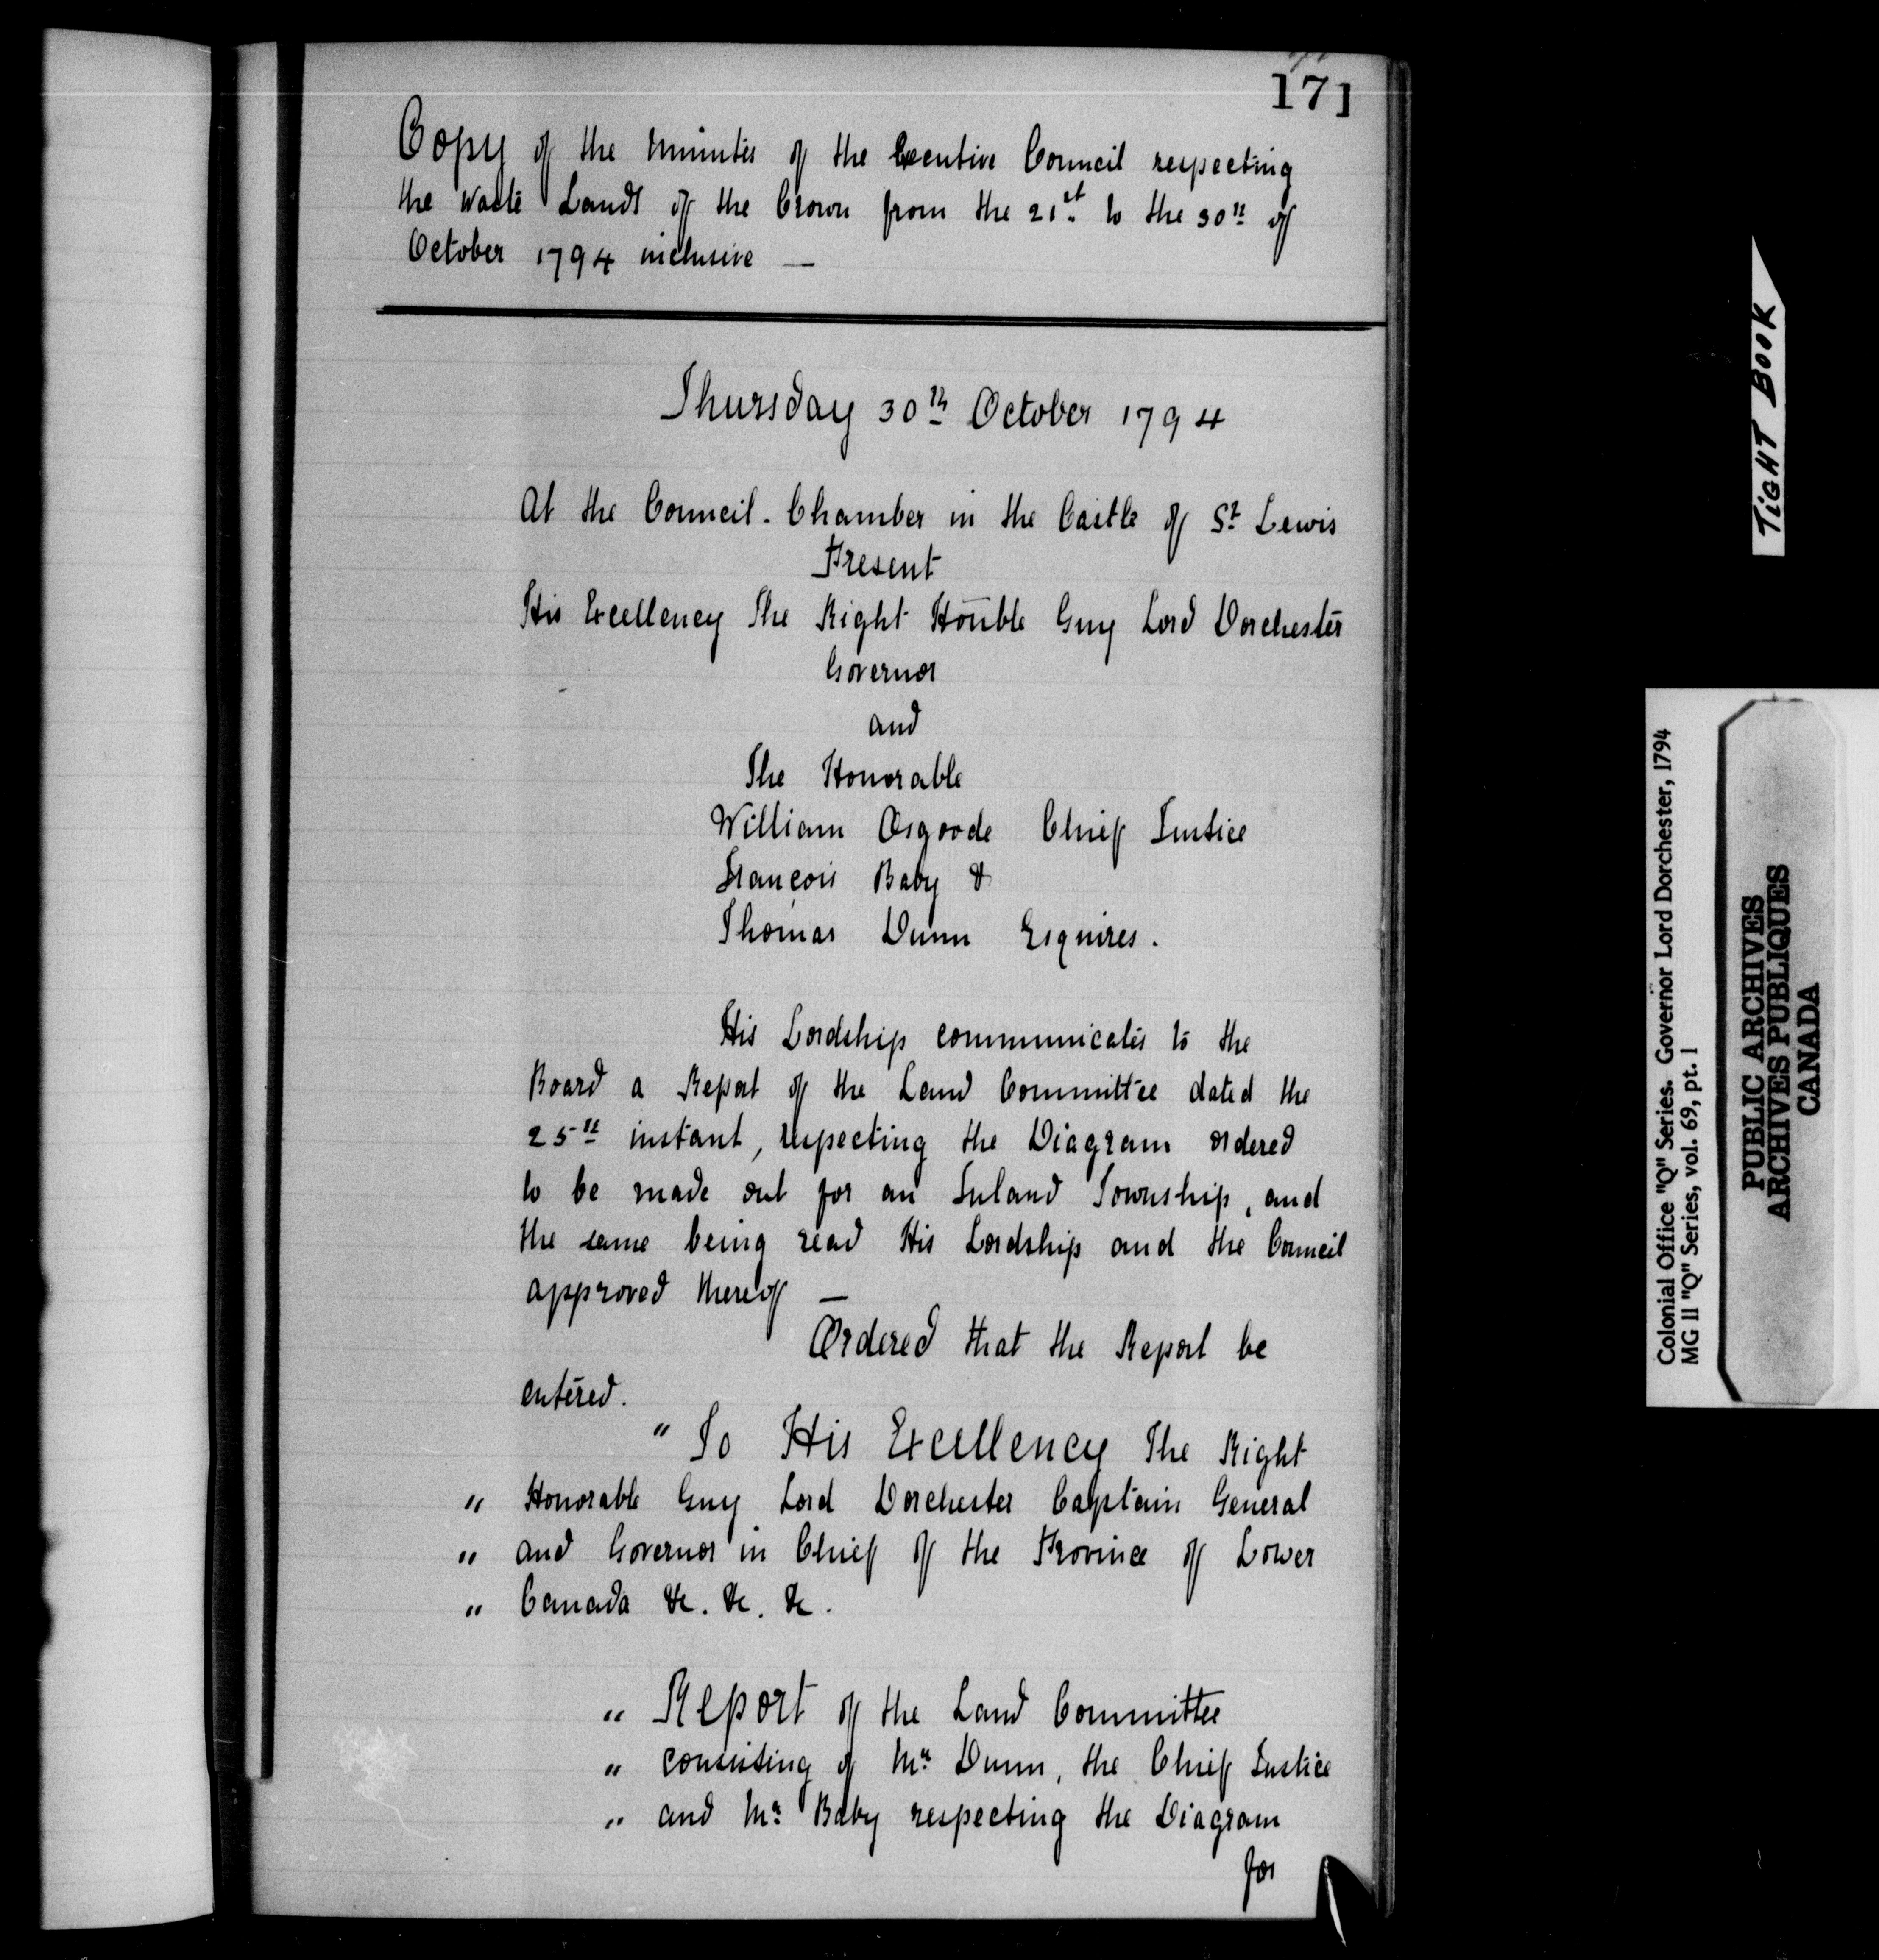 171
Copy of the Minutes of the Executive Council respecting
the Waste Lands of the Crown from the 21st to the 30th of
October 1794 inclusive —
Thursday 30th October 1794
At the Council-Chamber in the Castle of St Lewis
Present
His Excellency The Right Honble Guy Lord Dorchester
Governor
and
The Honorable
William Osgoode Chief Justice
François Baby &
Thomas Dunn Esquires.
His Lordship communicates to the
Board a Report of the Land Committee dated the
25th instant, respecting the Diagram ordered
to be made out for an Inland Township, and
the same being read His Lordship and the Council
approved thereof —
Ordered that the Report be
entered.
" To His Excellency The Right
" Honorable Guy Lord Dorchester Captain General
" and Governor in Chief of the Province of Lower
" Canada &c. &c. &c.
" Report of the Land Committee
" consisting of Mr Dunn, the Chief Justice
" and Mr Baby respecting the Diagram
for
TIGHT BOOK
Colonial Office "Q" Series. Governor Lord Dorchester, 1794
MG 11 "Q" Series, vol. 69, pt. 1
PUBLIC ARCHIVES
ARCHIVES PUBLIQUES
CANADA